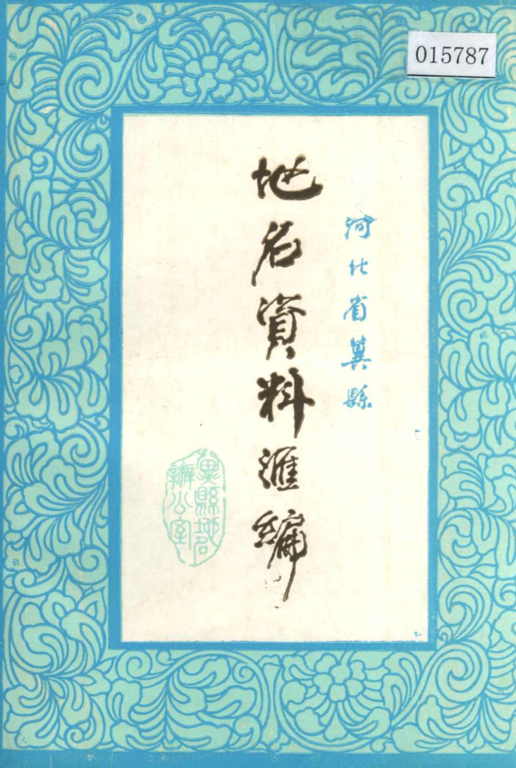 015787
河北省冀縣
地名資料滙編
冀縣地名
辦公室